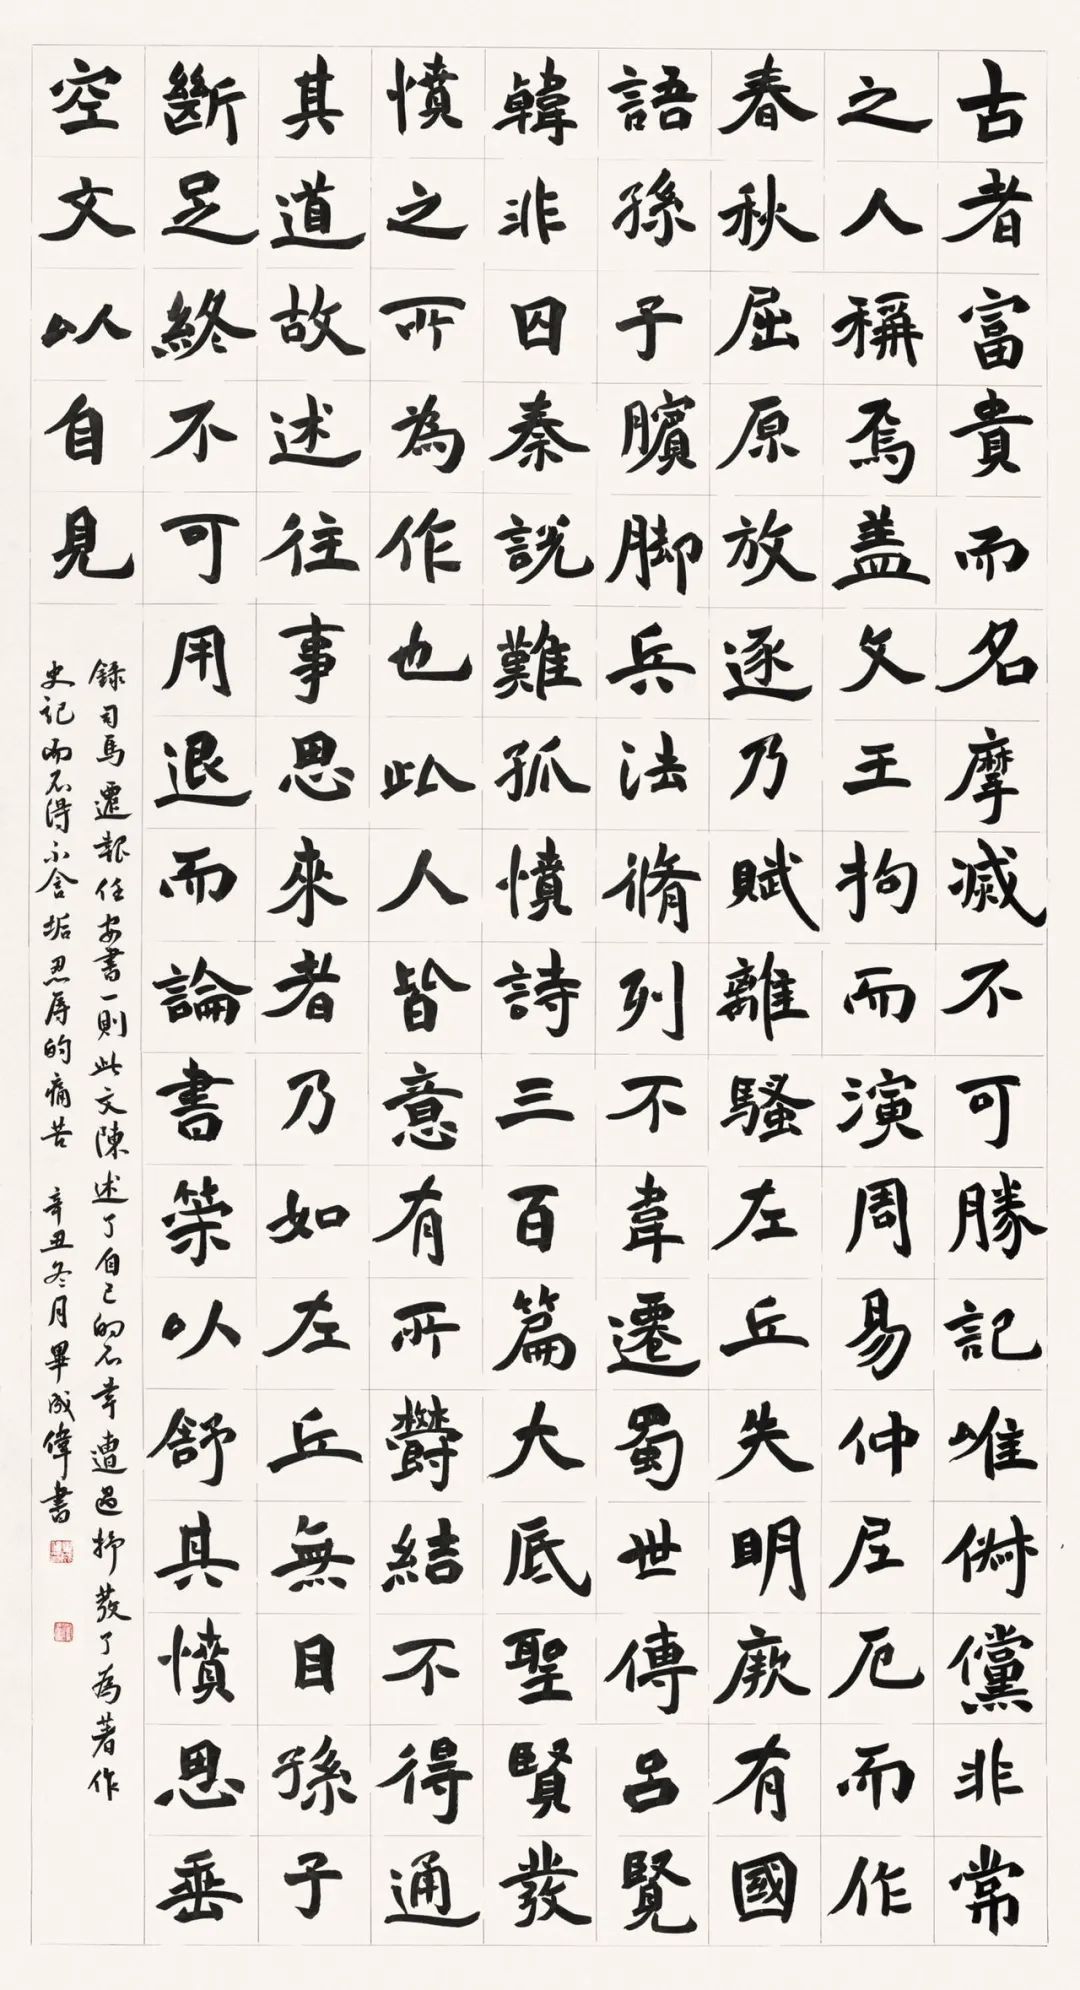 古者富貴而名摩滅不可勝記唯俶儻非常
之人稱焉盖文王拘而演周易仲尼厄而作
春秋屈原放逐乃賦離騷左丘失明厥有國
語孫子臏脚兵法脩列不韋遷蜀世傳呂覽
韓非囚秦說難孤憤詩三百篇大底聖賢發
憤之所為作也此人皆意有所鬱結不得通
其道故述往事思來者乃如左丘無目孫子
斷足終不可用退而論書策以舒其憤思垂
空文以自見
錄司馬遷報任安書一則此文陳述了自己的不幸遭遇抒發了為著作
史記而不得不含垢忍辱的痛苦 辛丑冬月畢成偉書